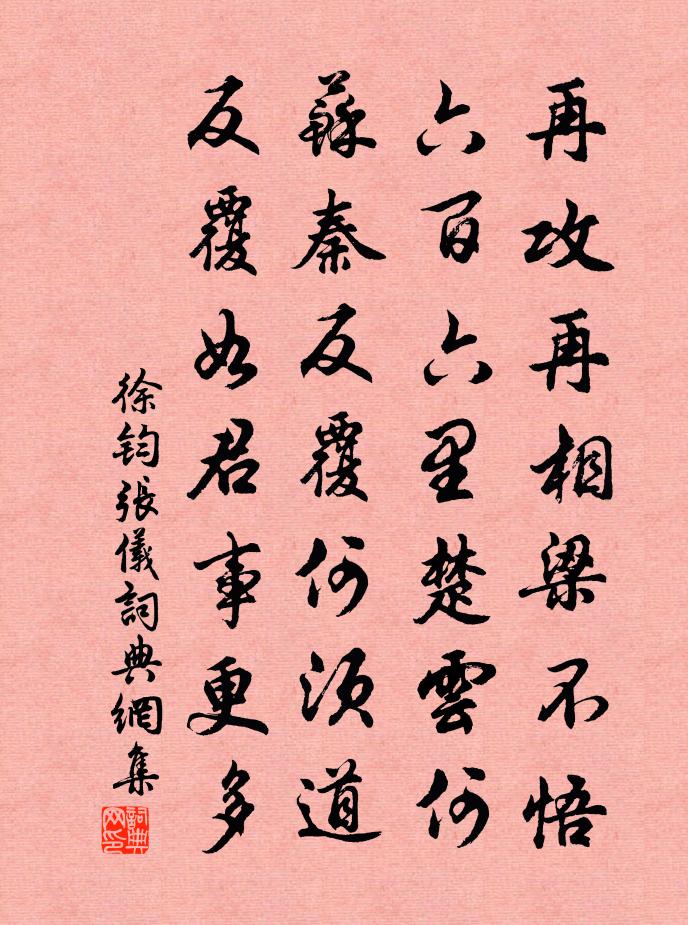 再攻再相梁不悟
六百六里楚雲何
蘇秦反覆何須道
反覆如君事更多
徐鈞張儀詞典網集
詞典网印